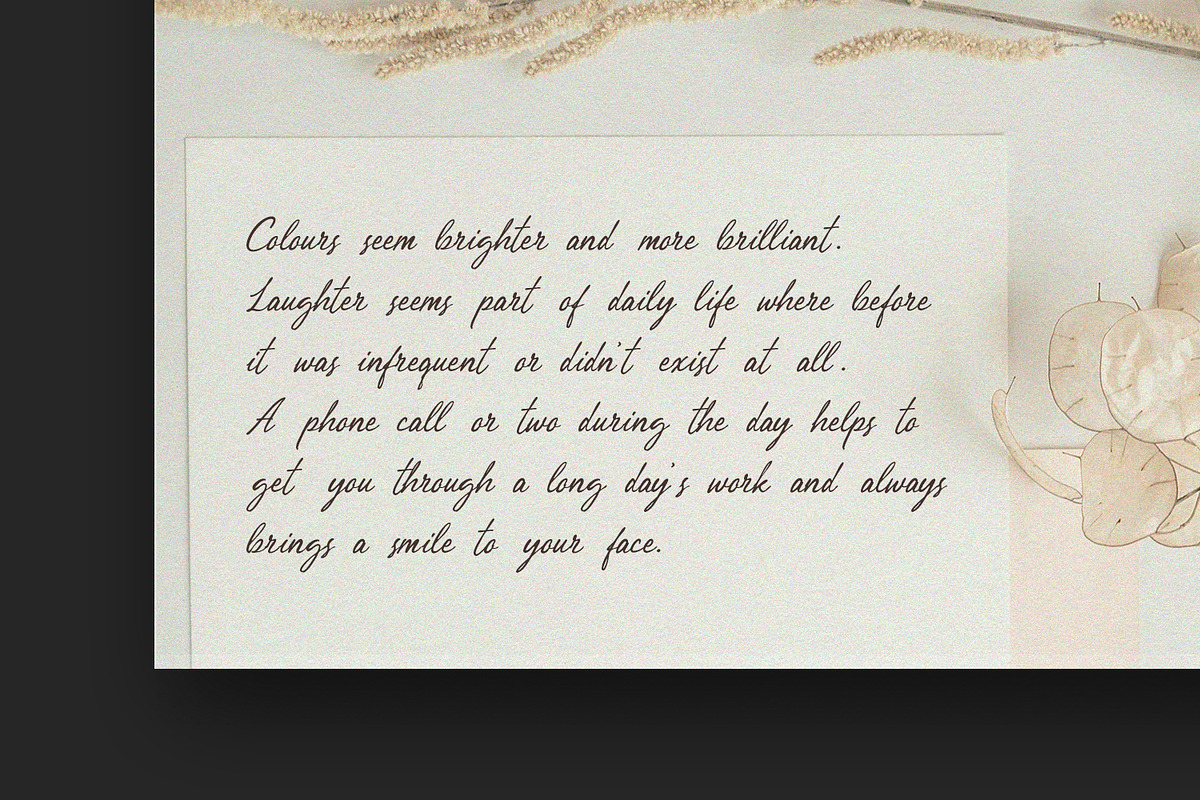 Colours seem brighter and more brilliant.
Laughter seems part of daily life where before
it was infrequent or didn't exist at all.
A phone call or two during the day helps to
get you through a long day's work and always
brings a smile to your face.